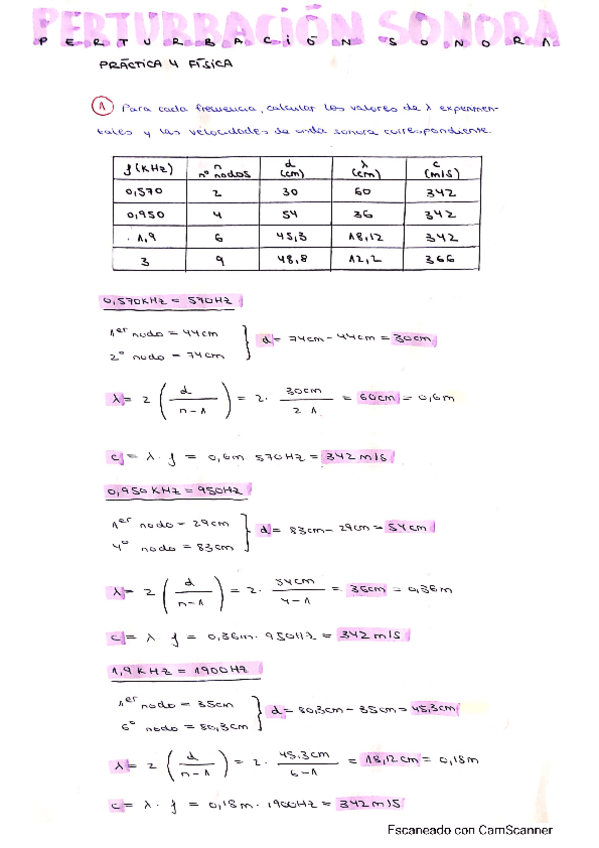 PERTURBACIÓN SONORA
PERTURBACIÓN SONORA
PRÁCTICA 4 FÍSICA
1 Para cada frecuencia, calcular los valores de λ experimen-
tales y las velocidades de onda sonora correspondiente.
f (KHz) n nº nodos d (cm) λ (cm) c (m/s)
0,570 2 30 60 342
0,950 4 54 36 342
1,9 6 45,3 18,12 342
3 9 48,8 12,2 366
0,570KHz = 570Hz
1er nodo = 44cm
2º nodo = 74cm
d = 74cm - 44cm = 30cm
λ = 2 (d / n-1) = 2 · 30cm / 2 1 = 60cm = 0,6m
c = λ · f = 0,6m 570Hz = 342m/s
0,950 KHz = 950Hz
1er nodo = 29cm
4º nodo = 83cm
d = 83cm - 29cm = 54cm
λ = 2 (d / n-1) = 2 · 54cm / 4-1 = 36cm = 0,36m
c = λ f = 0,36m · 950Hz = 342 m/s
1,9 KHz = 1900Hz
1er nodo = 35cm
6º nodo = 80,3cm
d = 80,3cm - 35cm = 45,3cm
λ = 2 (d / n-1) = 2 · 45,3cm / 6-1 = 18,12cm = 0,18m
c = λ · f = 0,18m · 1900Hz = 342m/s
Escaneado con CamScanner